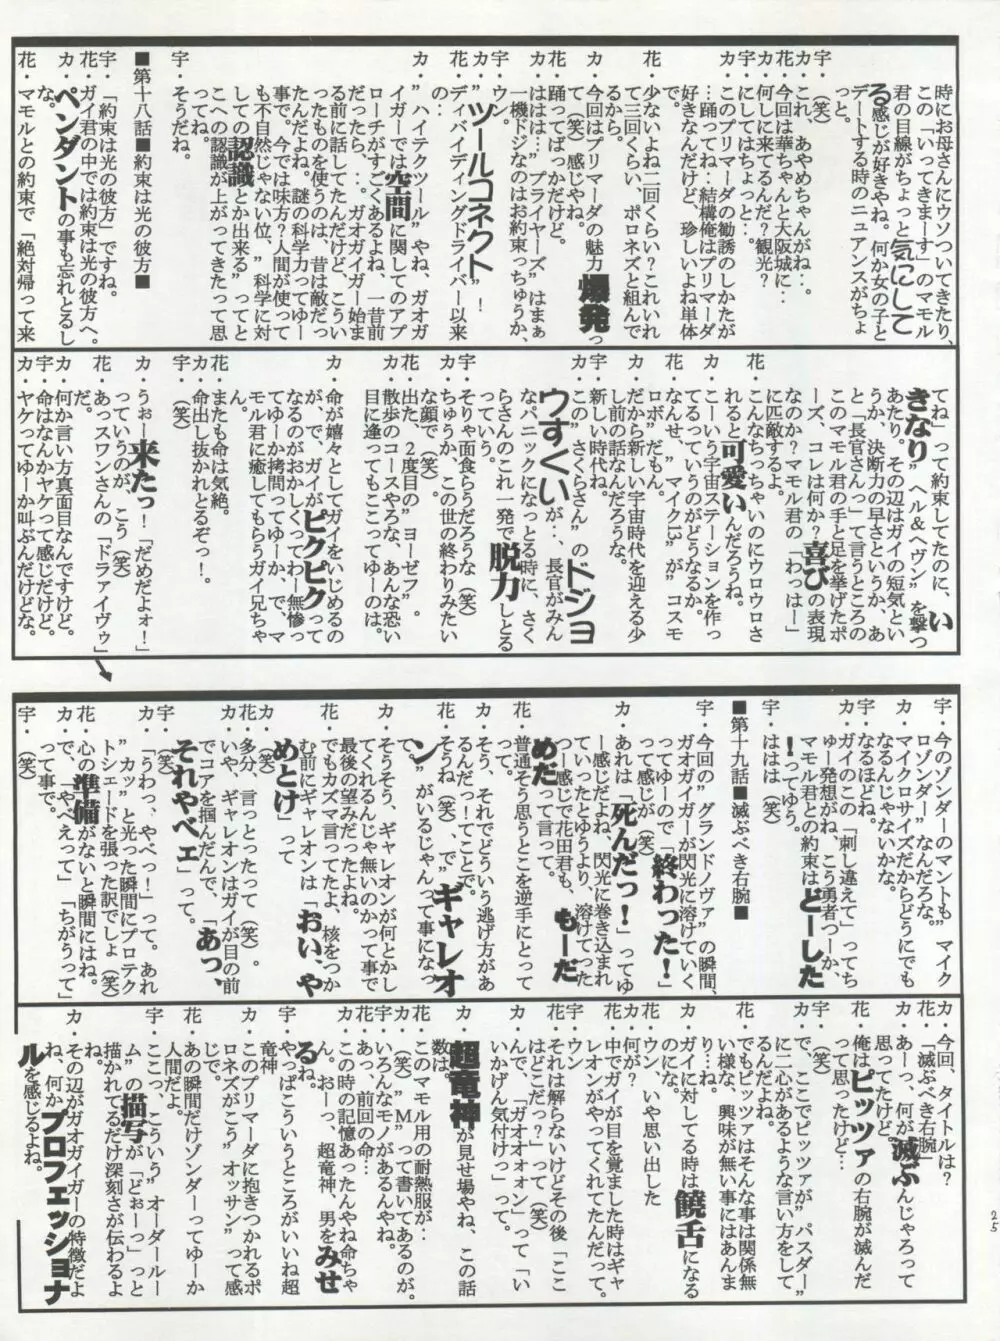 時にお母さんにウソついてきたり、
この「いってきまーす」のマモル
君の目線がちょっと気にして
る感じが好きやね。何か女の子と
デートする時のニュアンスがちょ
っと。
宇・（笑）
カ・これ、あやめちゃんがね‥。
花・今回は華ちゃんと大阪城に‥
カ・何しに来てるんだ？観光？
宇・にしてはちょっと‥。
カ・このプリマーダの勧誘のしかたが
…踊ってね‥結構俺はプリマーダ
好きなんだけど、珍しいよね単体
で。
花・少ないよね二回くらい？これいれ
て三回くらい、ポロネズと組んで
るから。
カ・今回はプリマーダの魅力爆発っ
て（笑）感じやね。
花・踊ってばっかだけど。
カ・ははは…”プライヤーズ”はまぁ
一機ドジなのはお約束っちゅうか、
宇・ウン。
カ・”ツールコネクト”！
花・ディバイディングドライバー以来
の‥
カ・”ハイテクツール”やね、ガオガ
イガーでは空間に関してのアプ
ローチがすごくあるよね、一昔前
だったら、‥。ガオガイガー始ま
る前に話してたんだけど、こうい
ったものを使うのは、昔は敵だっ
たんだよね。謎の科学力ってゆー
事で、今では味方？人間が使って
も不自然じゃない位、”科学に対
しての認識とか出来る”ってと
こへの認識が上がってきたって思
ってね。
宇・そうだね。
■第十八話■約束は光の彼方■
宇・「約束は光の彼方」ですね。
花・ガイ君の中では約束は光の彼方へ。
カ・ペンダントの事も忘れとるし
な。
花・マモルとの約束で「絶対帰って来
てね」って約束してたのに、い
きなり”ヘル＆ヘヴン”を撃つ
あたり。その辺はガイの短気とい
うか、決断力の早さというか、あ
と「長官さんっ」て言うところの
このマモル君の手と足を挙げたポ
ーズ、コレは何か？喜びの表現
なのか？マモル君の「わっはー」
に匹敵するよ。
花・こんなちっちゃいのにウロウロさ
れると可愛いんだろうね。
カ・こーいう宇宙ステーションを作っ
てるっていうのがどうなるか。
花・なんせ、”マイク13”が”コスモ
ロボ”だもん。
カ・だから新しい宇宙時代を迎える少
し前の話なんだろうな。
宇・新しい時代ね。
カ・この”さくらさん”のドジョ
ウすくいが‥、長官がみん
なパニックになっとる時に、さく
らさんのこれ一発で脱力しとる
っていう。
宇・そりゃ面食らうだろうな（笑）
カ・ちゅうか、この世の終わりみたい
な顔で（笑）。
花・出た、2度目の”ヨーゼフ”。
カ・散歩のコースやろな、あんな恐い
目に逢ってもここってゆーのは。
カ・命が嬉々としてガイをいじめるの
が、で、ガイがピクピクって
なるのがおかしくってわー無惨っ
てゆーか拷問ってゆーか、で、マ
モル君に癒してもらうガイ兄ちゃ
ん。
花・またも命は気絶。
カ・命出し抜かれとるぞっ！。
宇・（笑）
カ・うぉー来たっ！「だめだよォ！」
っていうのが、こう（笑）
花・あっスワンさんの「ドラァイヴゥ」
だ。
カ・何か言い方真面目なんですけど。
宇・命はなんかヤケって感じだけど。
カ・ヤケってゆーか叫ぶんだけどな。
宇・今のゾンダーのマントも”マイク
ロゾンダー”なんだろな。
カ・マイクロサイズだからどうにでも
なるんじゃないかな。
宇・なるほどね。
カ・ガイのこの「刺し違えて」ってち
ゅー発想がね、こう勇者つーか、
マモル君との約束はどーした
！ってゆう。
宇・ははは（笑）
■第十九話■滅ぶべき右腕■
宇・今回の”グランドノヴァ”の瞬間、
ガオガイガーが閃光に溶けていく
ってゆーので「終わった！」
って感じが（笑）
カ・あれは「死んだっ！」ってゆ
ー感じだよね、閃光に巻き込まれ
ていったとゆうより、溶けてった
つー感じで花田君も、もーだ
めだって言って。
花・普通そう思うとこを逆手にとって
カ・そう、それでどういう逃げ方があ
るんだっ！てことで。
花・そうね（笑）、で”ギャレオ
ン”がいるじゃんって事になっ
て、
カ・そうそう、ギャレオンが何とかし
てくれるんじゃ無いのかって事で
最後の望みだったよね。
花・でもカズマ言ってたよ、核をつか
む前にギャレオンは「おい、や
めとけ」って
カ・（笑）
花・多分、言っとったって（笑）。
カ・いや、ギャレオンはガイが目の前
でコアを掴んだんで、「あっ、
それやべェ」って。
宇・（笑）
カ・「うわっ、やべっ！」って。あれ
”カッ”と光った瞬間にプロテク
トシェードを張った訳でしょ（笑）
花・心の準備がないと瞬間にはね。
カ・で、「やべえって」「ちがうって」
って事で。
宇・（笑）
カ・今回、タイトルは？
花・「滅ぶべき右腕」
カ・あーっ、何が滅ぶんじゃろって
思ってたけど。
花・俺はピッツァの右腕が滅んだ
って思ったけど…
宇・（笑）
カ・で、ここでピッツァが”パスダー”
に二心があるような言い方をして
るんだよね。
花・でもピッツァはそんな事は関係無
い様な、興味が無い事にはあんま
り…ね。
カ・ガイに対してる時は饒舌になる
のにな。
花・ウン、いや思い出した
カ・何が？
花・中でガイが目を覚ました時はギャ
レオンがやってくれてたんだって。
宇・ウン
花・それは解らないけどその後「ここ
はどこだっ？」って（笑）
カ・んで、「ガオオォォン」って「い
いかげん気付けっ」って。
カ・超竜神が見せ場やね、この話
数は。
花・このマモル用の耐熱服が‥
カ・（笑）”M”って書いてあるのが。
宇・いろんなモノがあるんやね。
花・あっ、前回の命…
カ・この時の記憶あったんやね命ちゃ
ん。おーっ、超竜神、男をみせ
るね。
宇・やっぱこういうところがいいね超
竜神
カ・このプリマーダに抱きつかれるポ
ロネズがこう”オッサン”って感
じで。
花・あの瞬間だけゾンダーってゆーか
人間だよ。
宇・ここっ、こういう”オーダールー
ム”の描写が「どぉーっ」っと
描かれてるだけ深刻さが伝わるよ
ね。
カ・その辺がガオガイガーの特徴だよ
ね、何かプロフェッショナ
ルを感じるよね。
25